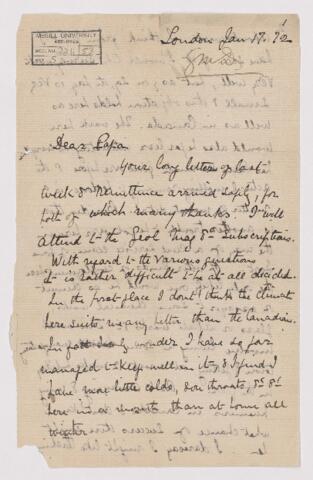 McGILL UNIVERSITY
ARCHIVES
ACC. NO.
REF.
London Jan 17. 72
G.M.D.
Dear Papa
Your long letter of last
week & remittance arrived safely, for
both of which many thanks. I will
attend to the Geol Mag & Subscriptions.
With regard to the various questions
it is rather difficult to be at all decided.
In the first place I don't think the climate
here suits me any better than the Canadian.
In fact I only wonder I have so far
managed to keep well in it, & I find I
have more little colds, sore throats, &c &c
here in a month than at home all
winter